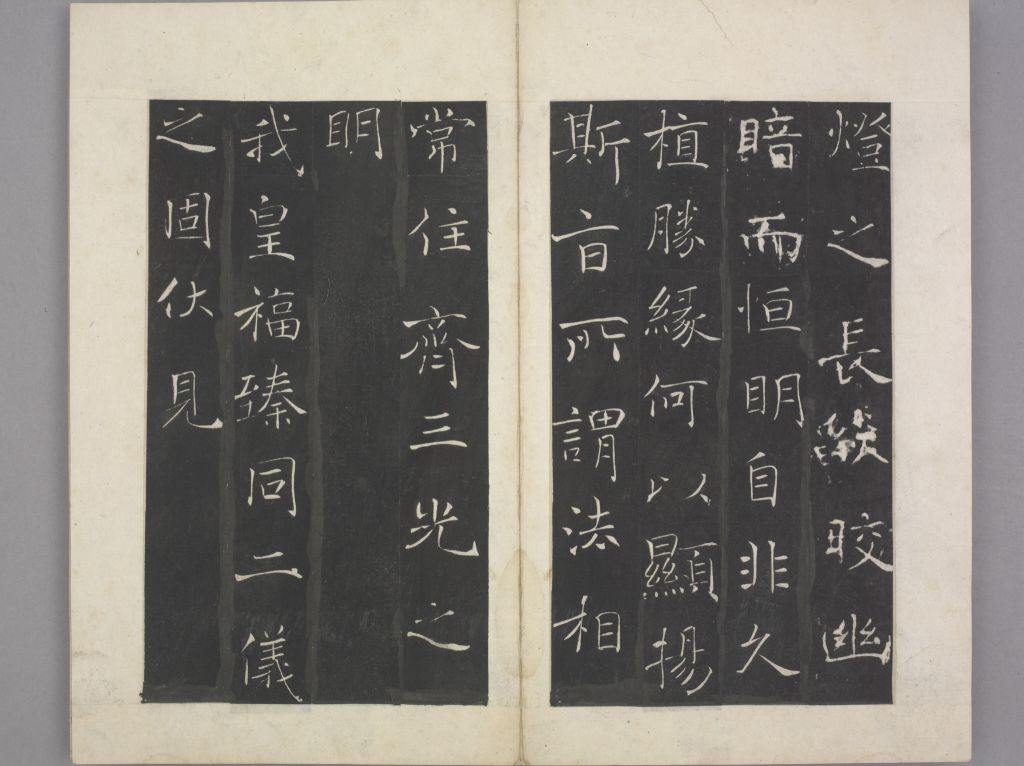 燈之長燄晈幽
暗而恒眀自非久
植勝緣何以顯揚
斯旨所謂法相
常住齊三光之
眀
我皇福臻同二儀
之固伏見